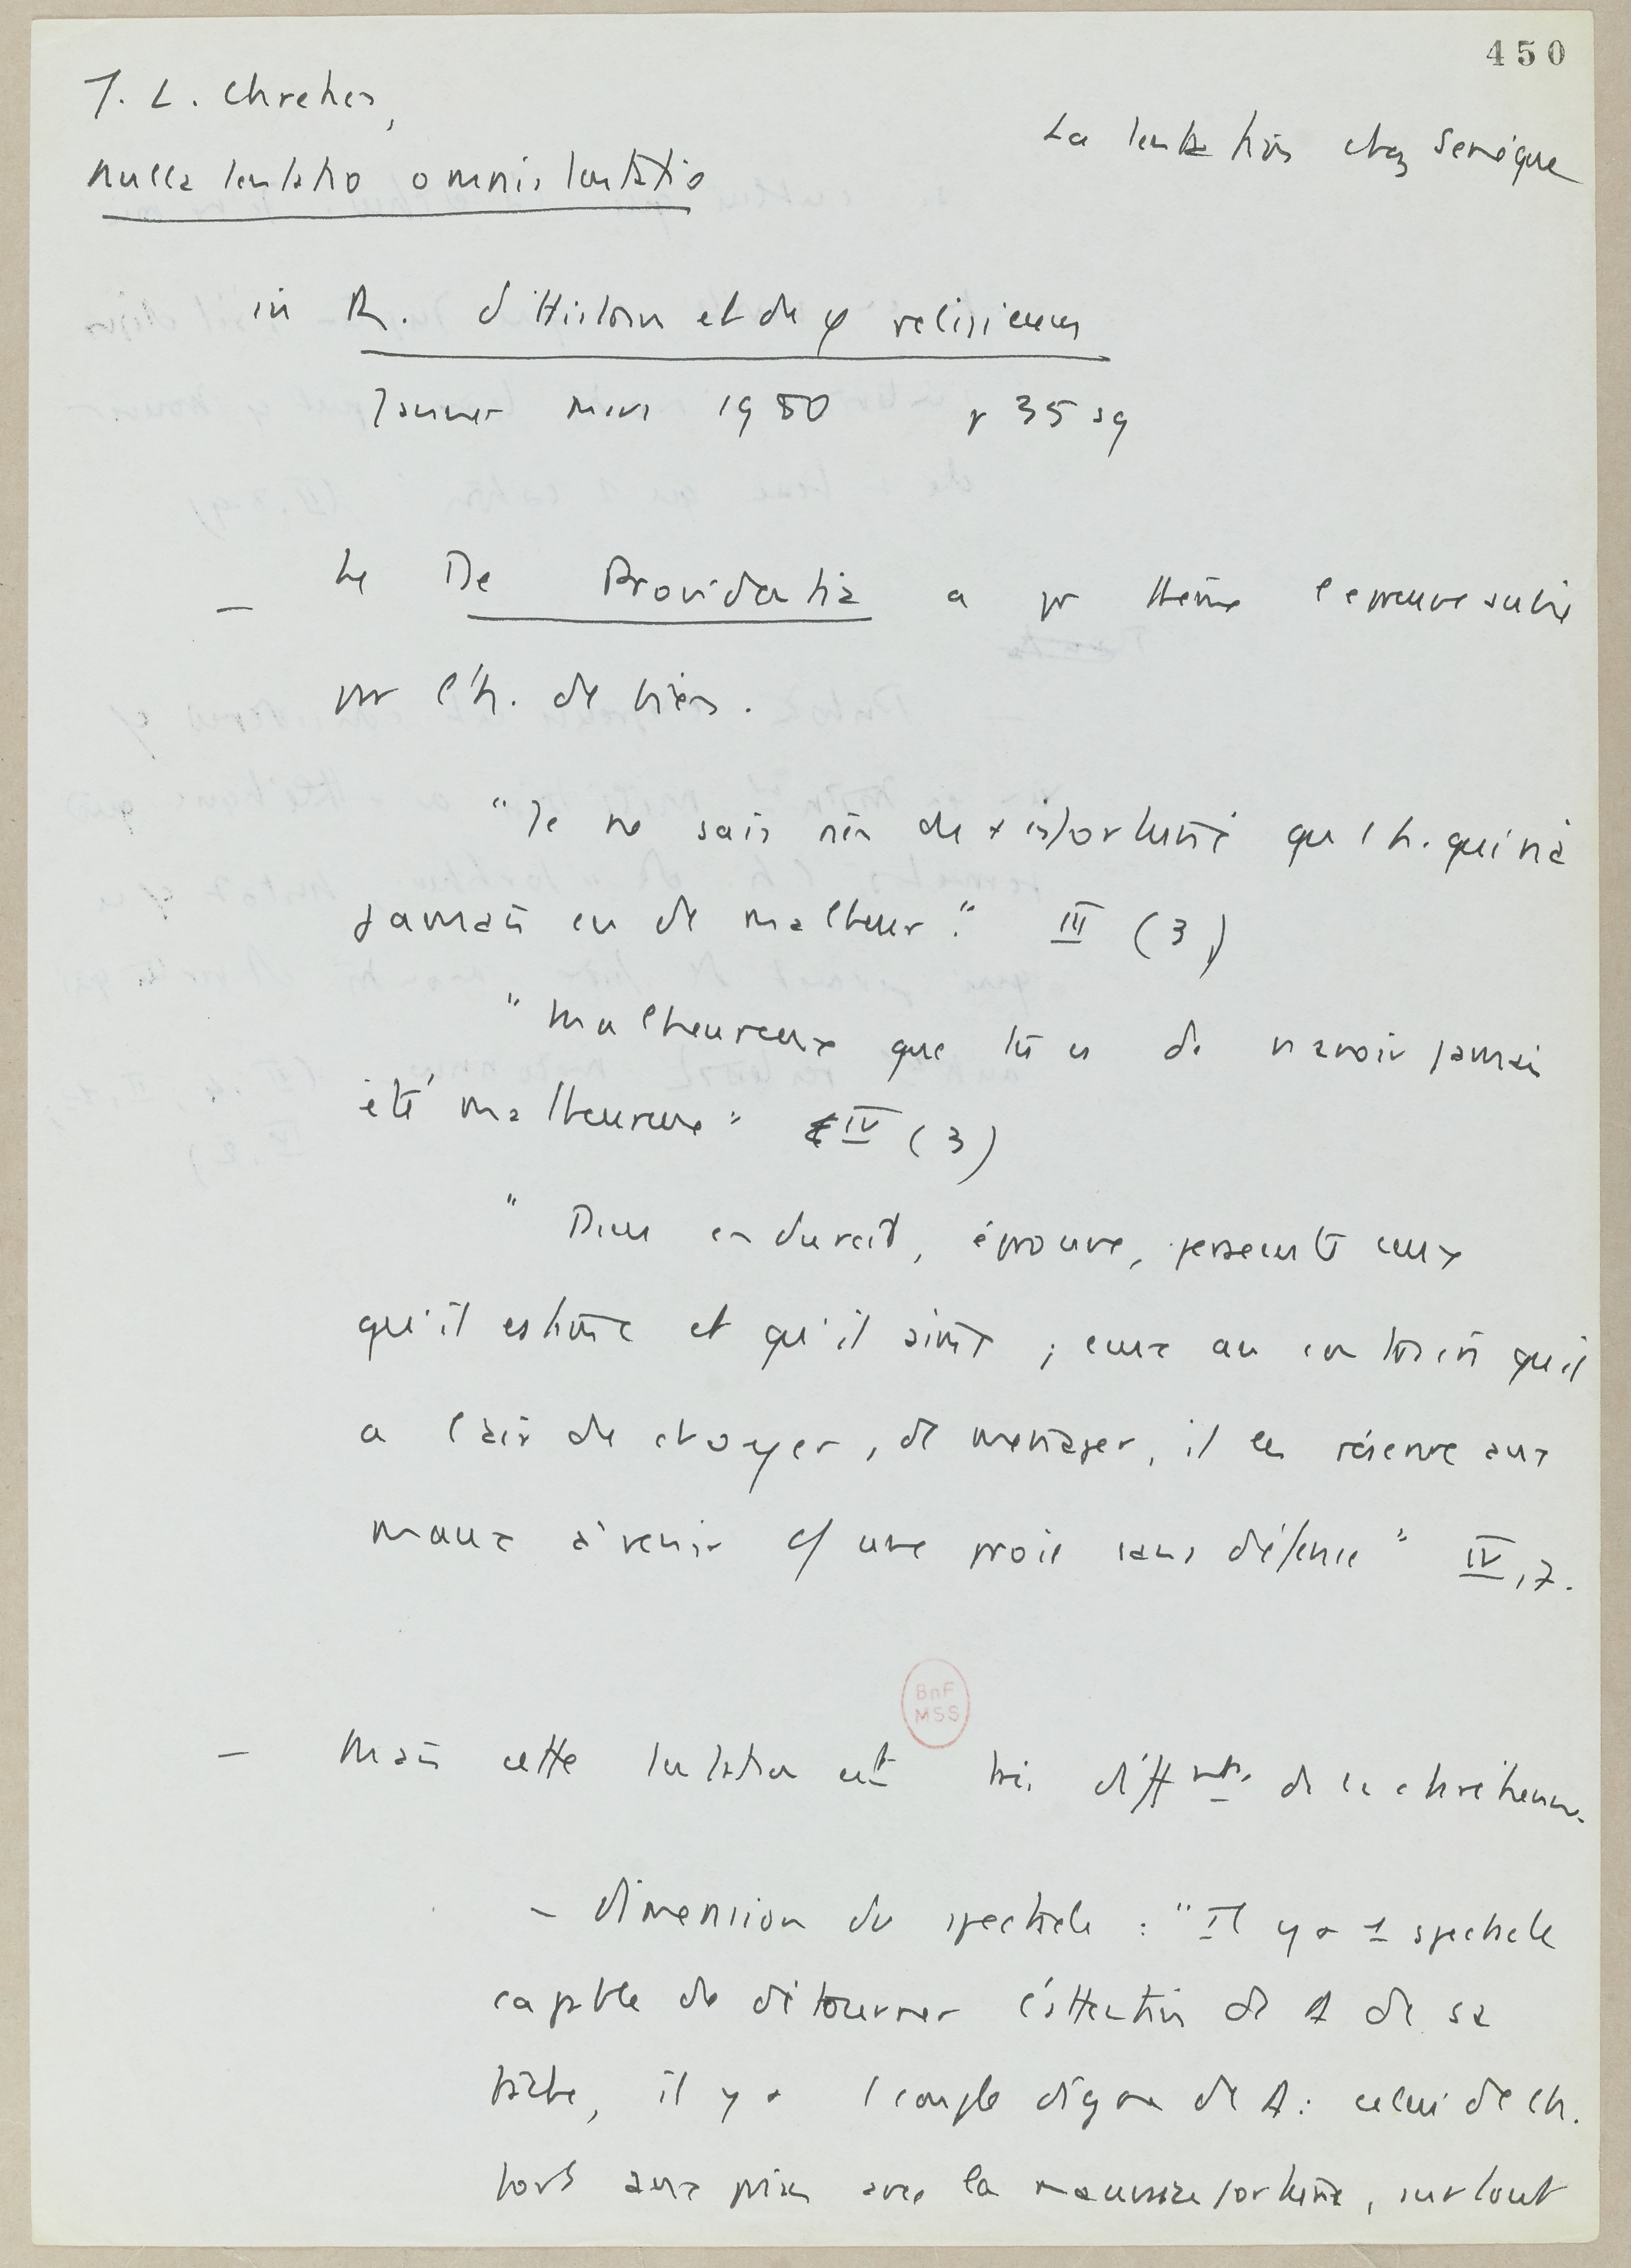 450
J. L. Chretien,
La tentation chez Seneque
nulla tentatio omnis tentatio
in R. d'Histoire et de φ religieuses
Janvier Mars 1980 p 35 sq
– Le De Providentia a pr thème l'épreuve subie
par l'h. de bien.
"Je ne sais rien de + infortuné qu'1 h. qui n'a
jamais eu de malheur." III (3)
"Malheureux que tu es de n'avoir jamais
été malheureux" IV (3)
"Dieu endurcit, éprouve, persecute ceux
qu'il estime et qu'il aime ; ceux au contraire qu'il
a l'air de choyer, de menager, il les réserve aux
maux à venir c/ une proie sans défense" IV, 7.
BnF
MSS
– Mais cette tentation est très differente de la chretienne.
– dimension du spectacle : "Il y a 1 spectacle
capable de détourner l'attention de de sa
tâche, il y a 1 couple digne de : celui de l'h.
fort aux prises avec la mauvaise fortune, surtout